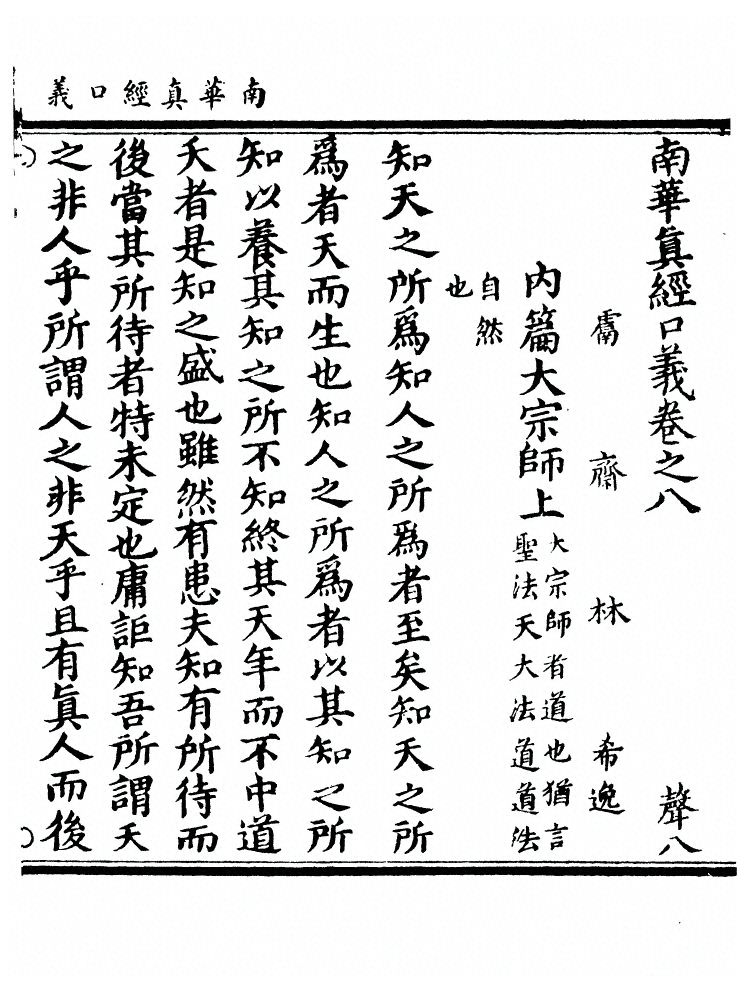 南華真經口義
南華眞經口義卷之八　聲八
鬳齋林希逸
內篇大宗師上
大宗師者道也猶言
聖法天大法道道法
自然
也
知天之所爲知人之所爲者至矣知天之所
爲者天而生也知人之所爲者以其知之所
知以養其知之所不知終其天年而不中道
夭者是知之盛也雖然有患夫知有所待而
後當其所待者特未定也庸詎知吾所謂天
之非人乎所謂人之非天乎且有眞人而後